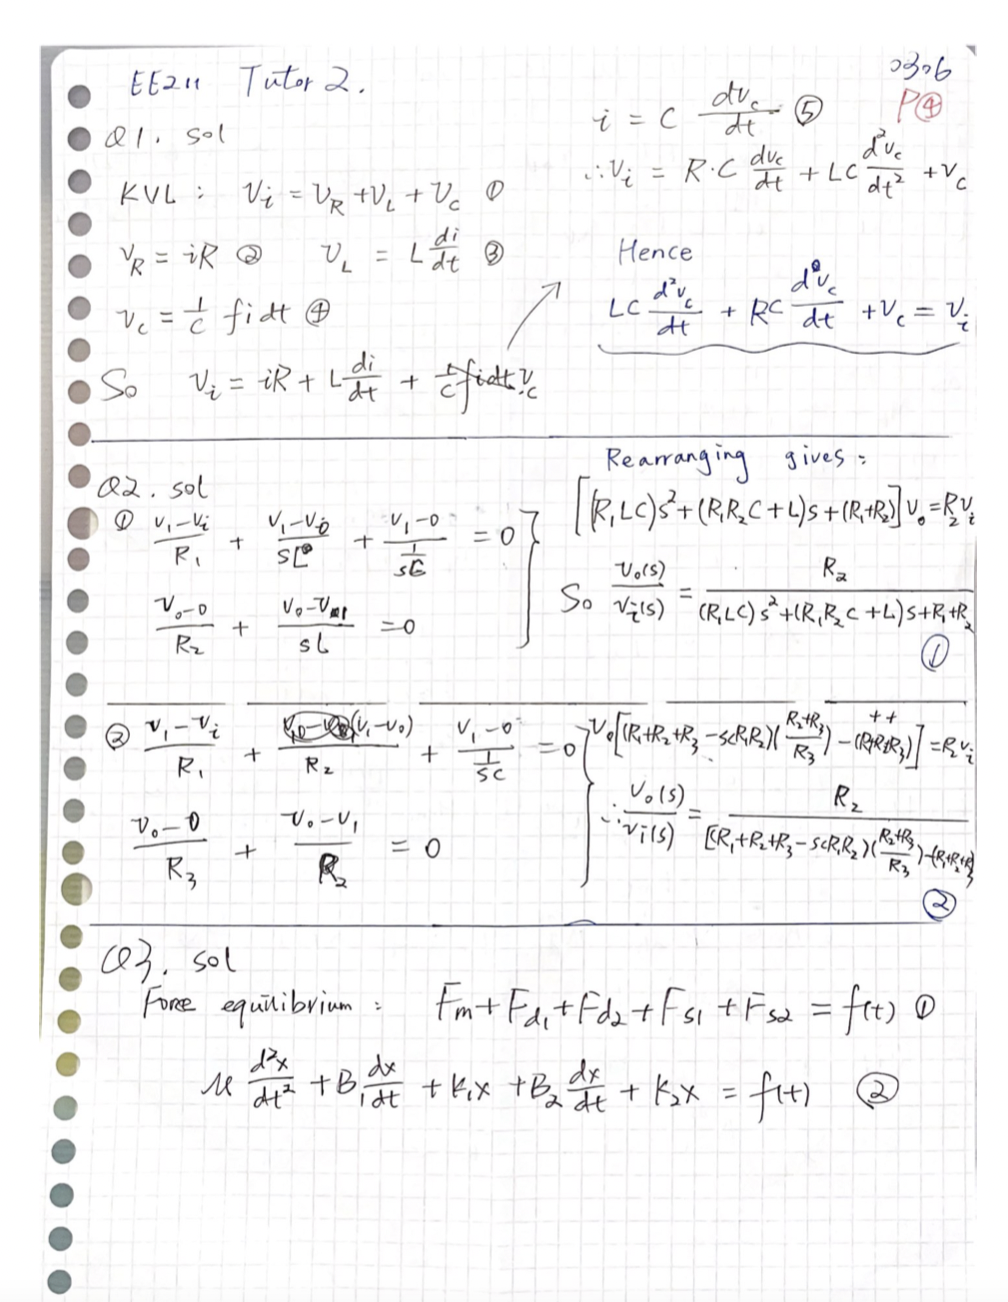 EE211 Tutor 2.
0306
P④
Q1. sol
KVL : Vi = VR + VL + Vc ①
VR = iR ② VL = L di/dt ③
Vc = 1/C ∫idt ④
So Vi = iR + L di/dt + Vc
i = C dvc/dt ⑤
∴ Vi = R·C dvc/dt + LC d²vc/dt² + Vc
Hence
LC d²vc/dt + RC dvc/dt + Vc = Vi
Q2. sol
① (V1-Vi)/R1 + (V1-Vo)/SL + (V1-0)/(1/SC) = 0
(Vo-0)/R2 + (Vo-V1)/SL = 0
Rearranging gives :
[(R1LC)s² + (R1R2C + L)s + (R1+R2)] Vo = R2 Vi
So Vo(s)/Vi(s) = R2/((R1LC)s² + (R1R2C + L)s + R1+R2)
①
② (V1-Vi)/R1 + (V1-Vo)/R2 + (V1-0)/(1/SC) = 0
(Vo-0)/R3 + (Vo-V1)/R2 = 0
Vo[(R1+R2+R3 - SCR1R2)((R2+R3)/R3) - (R1+R2+R3)] = R2 Vi
∴ Vo(s)/Vi(s) = R2/([(R1+R2+R3 - SCR1R2)((R2+R3)/R3) - (R1+R2+R3)
②
Q3. sol
Force equilibrium : Fm + Fd1 + Fd2 + Fs1 + Fs2 = f(t) ①
M d²x/dt² + B1 dx/dt + K1x + B2 dx/dt + K2x = f(t) ②